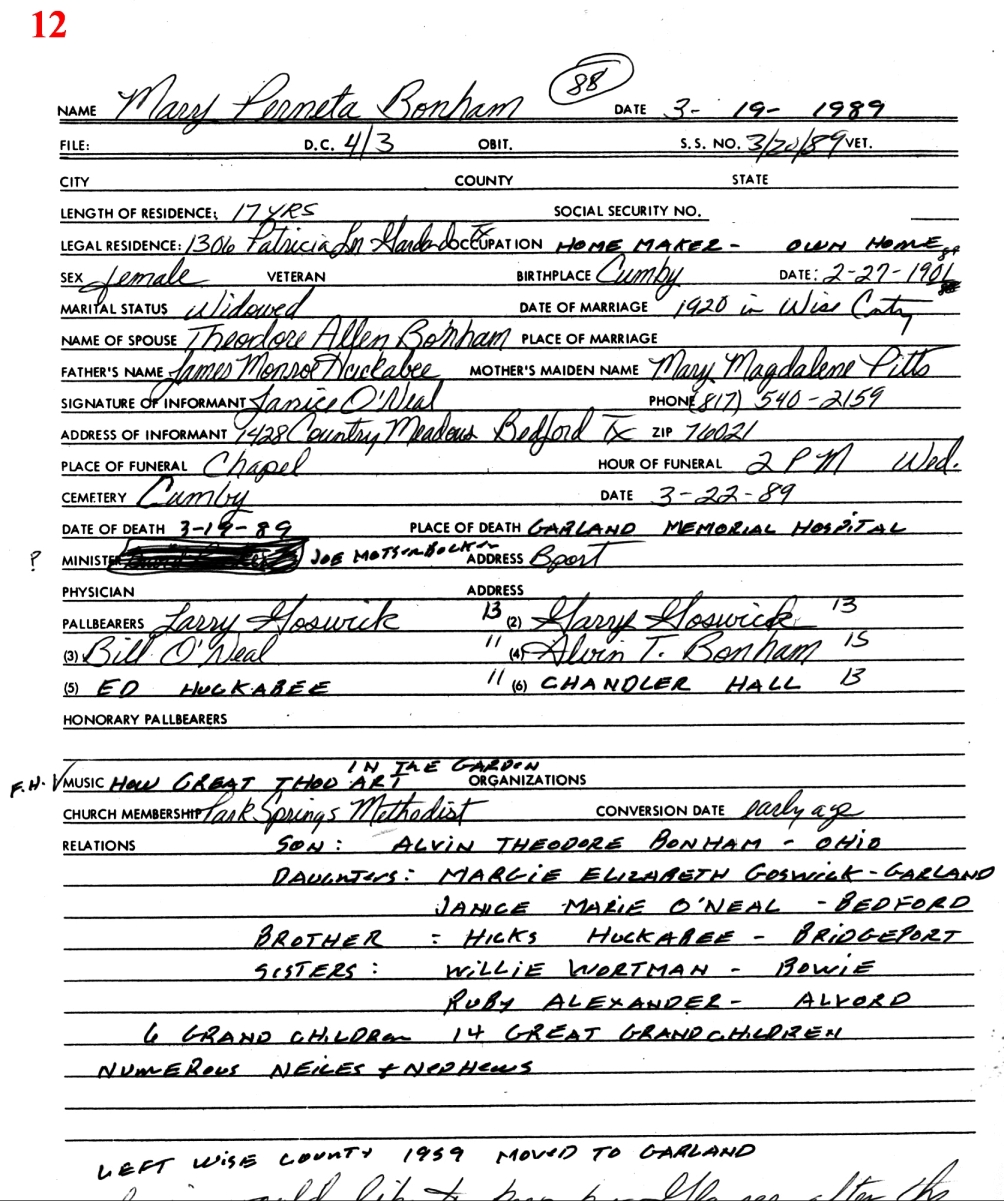 12
88
NAME Mary Perneta Bonham DATE 3- 19- 1989
FILE: D.C. 4/3 OBIT. S.S. NO. 3/20/89 VET.
CITY COUNTY STATE
LENGTH OF RESIDENCE: 17 YRS SOCIAL SECURITY NO.
LEGAL RESIDENCE: 1306 Patricia Ln Garland Tx OCCUPATION HOME MAKER - OWN HOME
SEX female VETERAN BIRTHPLACE Cumby DATE: 2-27-1901
MARITAL STATUS Widowed DATE OF MARRIAGE 1920 in Wise Cnty
NAME OF SPOUSE Theodore Allen Bonham PLACE OF MARRIAGE
FATHER'S NAME James Monroe Huckabee MOTHER'S MAIDEN NAME Mary Magdalene Pitts
SIGNATURE OF INFORMANT Janice O'Neal PHONE (817) 540-2159
ADDRESS OF INFORMANT 1428 Country Meadows Bedford Tx ZIP 76021
PLACE OF FUNERAL Chapel HOUR OF FUNERAL 2 PM Wed.
CEMETERY Cumby DATE 3-22-89
DATE OF DEATH 3-19-89 PLACE OF DEATH GARLAND MEMORIAL HOSPITAL
? MINISTER JOE ADDRESS Bport
PHYSICIAN ADDRESS
PALLBEARERS Larry Goswick 13 (2) Garry Goswick 13
(3) Bill O'Neal 11 (4) Alvin T. Bonham 15
(5) ED HUCKABEE 11 (6) CHANDLER HALL 13
HONORARY PALLBEARERS
IN THE GARDEN
F.H. ✓ MUSIC HOW GREAT THOU ART ORGANIZATIONS
CHURCH MEMBERSHIP Park Springs Methodist CONVERSION DATE early age
RELATIONS SON: ALVIN THEODORE BONHAM - OHIO
DAUGHTERS: MARGIE ELIZABETH GOSWICK - GARLAND
JANICE MARIE O'NEAL - BEDFORD
BROTHER : HICKS HUCKABEE - BRIDGEPORT
SISTERS: WILLIE WORTMAN - BOWIE
RUBY ALEXANDER - ALVORD
6 GRAND CHILDREN 14 GREAT GRANDCHILDREN
NUMEROUS NEICES + NEPHEWS
LEFT WISE COUNTY 1959 MOVED TO GARLAND